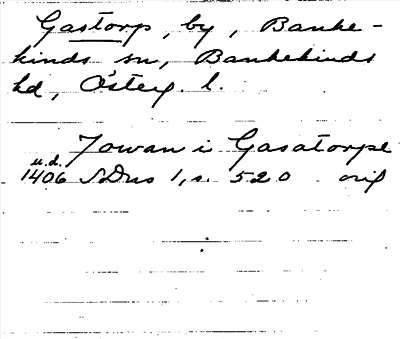 Gastorp, by, Banke-
kinds sn, Bankekinds
hd, Österg. l.
Jowan i Gasatorpe
u.d.
1406 SDns 1, s. 520 orig